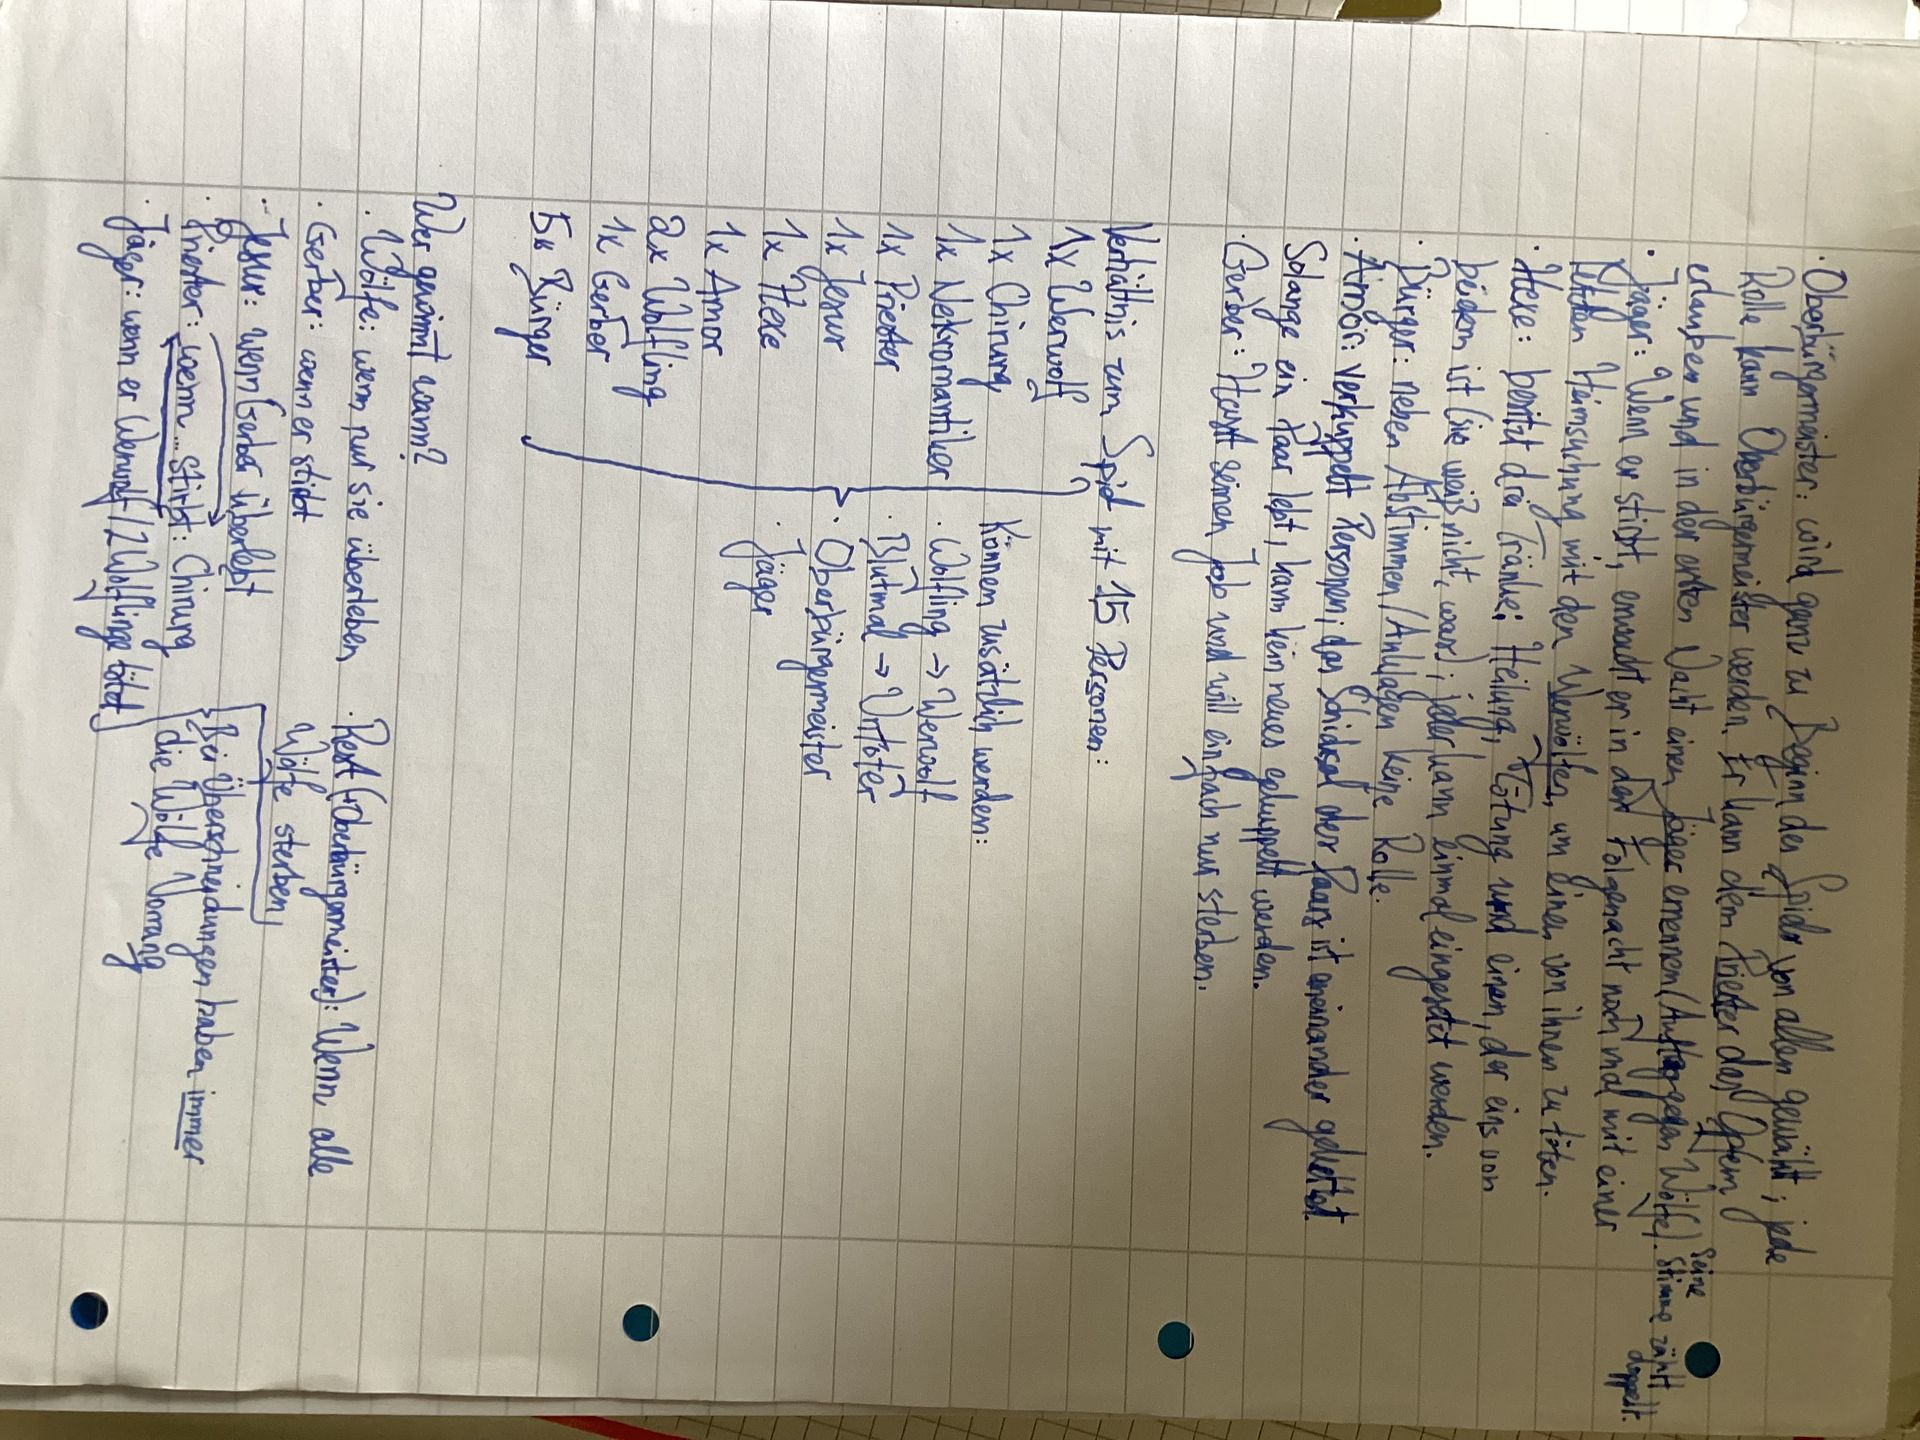 · Oberbürgermeister: wird ganz zu Beginn des Spiels von allen gewählt; jede
Rolle kann Oberbürgermeister werden. Er kann dem Priester das Opfern
erlauben und in der ersten Nacht einen Jäger ernennen (Auftrag gegen Wölfe). Seine Stimme zählt doppelt.
· Jäger: Wenn er stirbt, erwacht er in der Folgenacht noch mal mit einer
letzten Heimsuchung mit den Werwölfen, um einen von ihnen zu töten.
· Hexe: besitzt drei Tränke: Heilung, Tötung und einen, der eins von
beidem ist (sie weiß nicht, was); jeder kann einmal eingesetzt werden.
· Bürger: neben Abstimmen/Anklagen keine Rolle.
· Amor: verkuppelt Personen; das Schicksal der Paars ist aneinander gekettet.
Solange ein Paar lebt, kann kein neues gekuppelt werden.
· Gerber: Hasst seinen Job und will einfach nur sterben.
Verhältnis zum Spiel mit 15 Personen:
1x Werwolf
1x Chirurg
1x Nekromantiker
1x Priester
1x Jesus
1x Hexe
1x Amor
2x Wölfling
1x Gerber
5x Bürger
Können zusätzlich werden:
· Wölfling → Werwolf
· Blutmal → Untoter
· Oberbürgermeister
· Jäger
Wer gewinnt wann?
· Wölfe: wenn nur sie überleben
· Gerber: wenn er stirbt
· Jesus: wenn Gerber überlebt
· Priester: wenn ... stirbt: Chirurg
· Jäger: wenn er Werwolf/2 Wölflinge tötet
· Rest (+Oberbürgermeister): Wenn alle
Wölfe sterben
Bei Überschneidungen haben immer
die Wölfe Vorrang